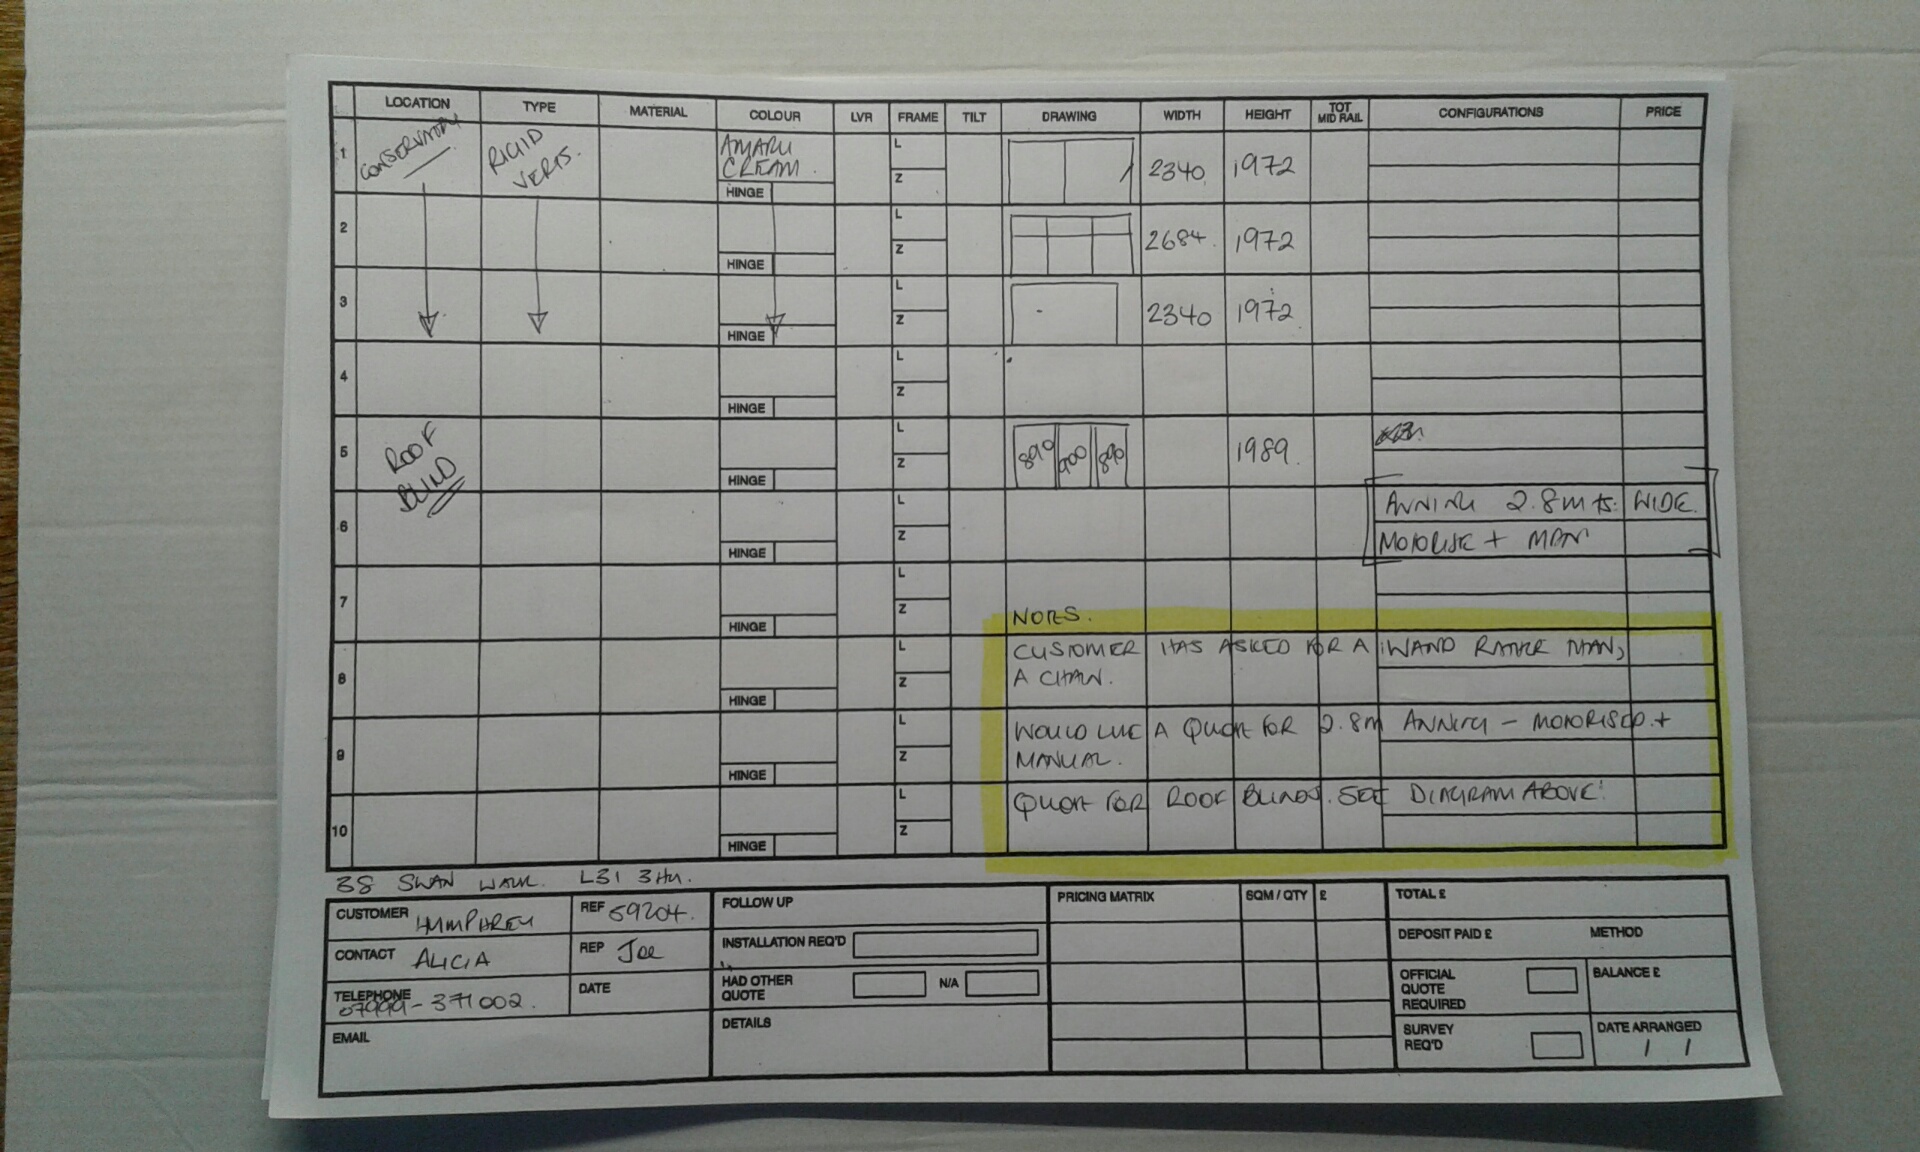 LOCATION TYPE MATERIAL COLOUR LVR FRAME TILT DRAWING WIDTH HEIGHT TOT MID RAIL CONFIGURATIONS PRICE
1 CONSERVATORY RIGID VERTS. AMARU CREAM. HINGE L Z 2340 1972
2 HINGE L Z 2684. 1972
3 HINGE L Z 2340 1972
4 HINGE L Z
5 ROOF BLIND HINGE L Z 890 900 890 1989.
6 HINGE L Z AWNING 2.8mts. WIDE.
MOTORISE + MAN
7 HINGE L Z
NOTES.
8 HINGE L Z CUSTOMER HAS ASKED FOR A WAND RATHER THAN,
A CHAIN.
9 HINGE L Z WOULD LIKE A QUOTE FOR 2.8m AWNING - MOTORISED. +
MANUAL.
10 HINGE L Z QUOTE FOR ROOF BLINDS. SEE DIAGRAM ABOVE.
38 SWAN WALK. L31
CUSTOMER HUMPHREY REF 69204.
CONTACT ALICIA REP Joe
TELEPHONE 07999-371002. DATE
EMAIL
FOLLOW UP
INSTALLATION REQ'D
HAD OTHER QUOTE N/A
DETAILS
PRICING MATRIX SQM / QTY £
TOTAL £
DEPOSIT PAID £ METHOD
OFFICIAL QUOTE REQUIRED BALANCE £
SURVEY REQ'D DATE ARRANGED
/ /